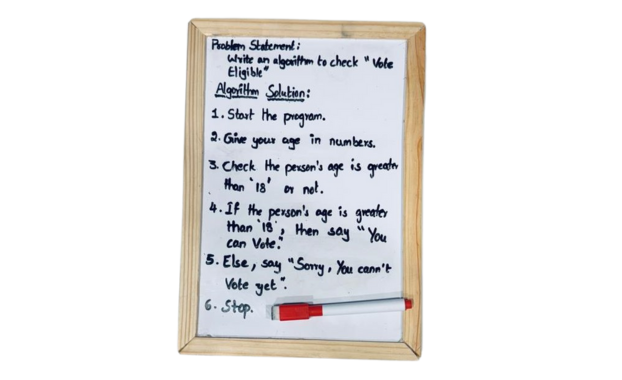 Problem Statement:
Write an algorithm to check "Vote
Eligible"
Algorithm Solution:
1. Start the program.
2. Give your age in numbers.
3. Check the person's age is greater
than '18' or not.
4. If the person's age is greater
than '18', then say "You
can Vote."
5. Else, say "Sorry, You cann't
Vote yet".
6. Stop.